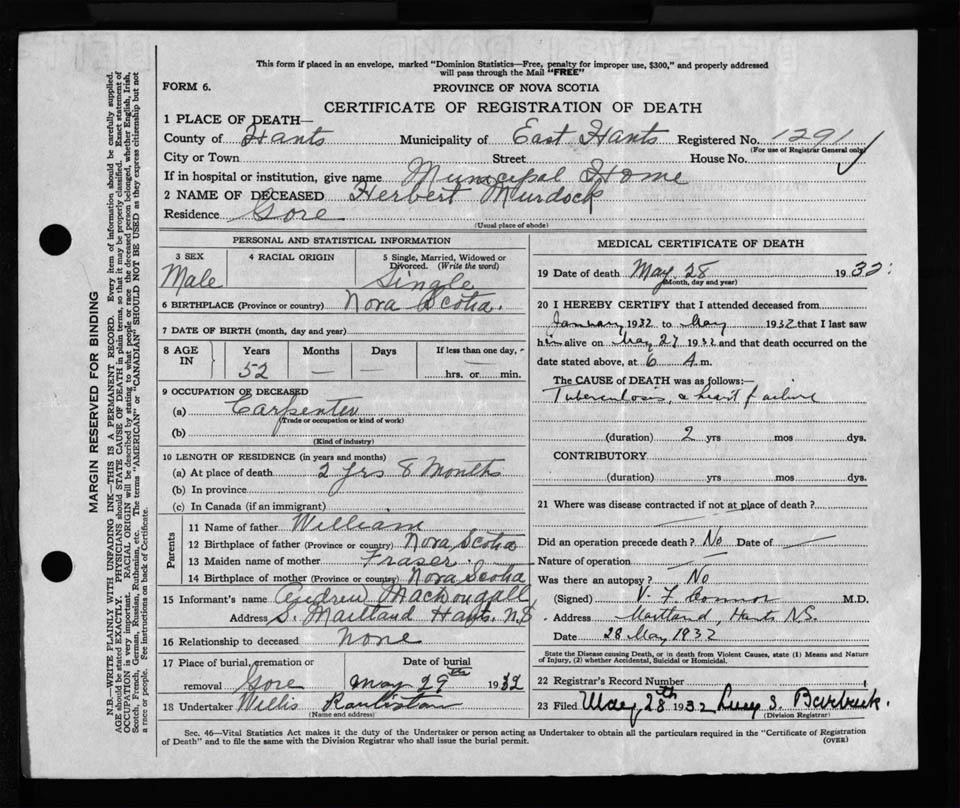 This form if placed in an envelope, marked "Dominion Statistics—Free, penalty for improper use, $300," and properly addressed
will pass through the Mail "FREE"
FORM 6.
PROVINCE OF NOVA SCOTIA
CERTIFICATE OF REGISTRATION OF DEATH
1 PLACE OF DEATH—
County of Hants Municipality of East Hants Registered No. 1291
(For use of Registrar General only)
City or Town Street House No.
If in hospital or institution, give name Municipal Home
2 NAME OF DECEASED Herbert Murdock
Residence Gore
(Usual place of abode)
PERSONAL AND STATISTICAL INFORMATION
3 SEX 4 RACIAL ORIGIN 5 Single, Married, Widowed or
Divorced. (Write the word)
Male Single
6 BIRTHPLACE (Province or country) Nova Scotia.
7 DATE OF BIRTH (month, day and year)
8 AGE IN Years Months Days If less than one day,
52 — — hrs. or min.
9 OCCUPATION OF DECEASED
(a) Carpenter
(Trade or occupation or kind of work)
(b)
(Kind of industry)
10 LENGTH OF RESIDENCE (in years and months)
(a) At place of death 2 yrs 8 Months
(b) In province
(c) In Canada (if an immigrant)
Parents
11 Name of father William
12 Birthplace of father (Province or country) Nova Scotia
13 Maiden name of mother Fraser
14 Birthplace of mother (Province or country) Nova Scotia
15 Informant's name Andrew MacDougall
Address S. Maitland Hants. N.S
16 Relationship to deceased none
17 Place of burial, cremation or Date of burial
removal Gore May 29th 1932
18 Undertaker Willis
(Name and address)
MEDICAL CERTIFICATE OF DEATH
19 Date of death May 28 1932
(Month, day and year)
20 I HEREBY CERTIFY that I attended deceased from
January 1932 to May 1932 that I last saw
him alive on May 27 1932 and that death occurred on the
date stated above, at 6 A.m.
The CAUSE of DEATH was as follows:—
Tuberculosis, & heart failure
(duration) 2 yrs mos dys.
CONTRIBUTORY
(duration) yrs mos dys.
21 Where was disease contracted if not at place of death?
Did an operation precede death? No Date of —
Nature of operation —
Was there an autopsy? No
(Signed) V. F Connor M.D.
Address Maitland, Hants NS.
Date 28 May 1932
State the Disease causing Death, or in death from Violent Causes, state (1) Means and
Nature of Injury, (2) whether Accidental, Suicidal or Homicidal.
22 Registrar's Record Number
23 Filed May 28th 1932 Lucy S.
(Division Registrar)
Sec. 46—Vital Statistics Act makes it the duty of the Undertaker or person acting as Undertaker to obtain all the particulars required in the "Certificate of Registration
of Death" and to file the same with the Division Registrar who shall issue the burial permit. (OVER)
MARGIN RESERVED FOR BINDING
N.B.—WRITE PLAINLY WITH UNFADING INK—THIS IS A PERMANENT RECORD. Every item of information should be carefully supplied.
AGE should be stated EXACTLY. PHYSICIANS should STATE CAUSE OF DEATH in plain terms, so that it may be properly classified. Exact statement of
OCCUPATION is very important. RACIAL ORIGIN will be described by stating to what people or race the deceased person belonged, whether English, Irish,
Scotch, French, German, Russian, Ruthenian, etc. The terms "AMERICAN" or "CANADIAN" SHOULD NOT BE USED as they express citizenship but not
a race or people. See instructions on back of Certificate.